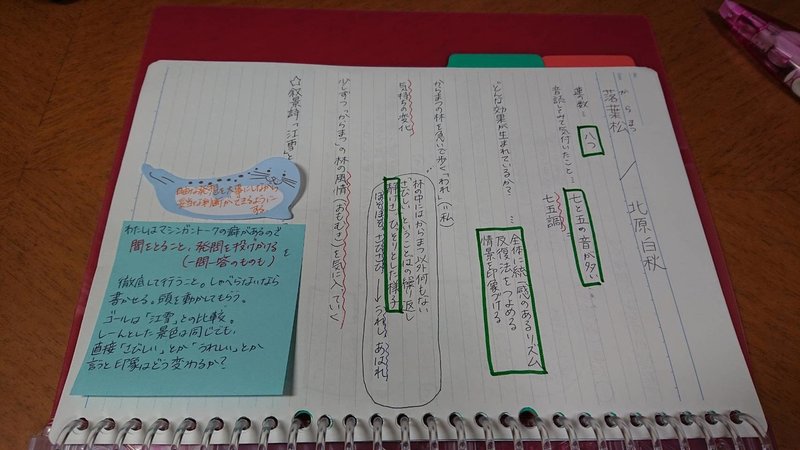 落葉松
からまつ
北原白秋
連の数… 八つ
音読してみて気付いたこと… 七と五の音が多い
七五調
どんな効果が生まれているか?… 全体に統一感のあるリズム
反復法をつよめる
情景を印象づける
からまつの林を急いで歩く「われ」(=私)
気持ちの変化
林の中にはからまつ以外何もない
さびしいということばの繰り返し
静けさ、ひっそりとした様子
ほそぼそ、さびさび → うれし、あはれ
少しずつ「からまつ」の林の風情(おもむき)を気に入っていく
☆叙景詩「江雪」と
自由な発想を大事にしながら
する
わたしはマシンガントークの癖があるので
間をとること、発問を投げかける
(一問一答のものも)を
徹底して行うこと。しゃべらないなら
書かせる。頭を動かしてもらう。
ゴールは「江雪」との比較。
しーんとした景色は同じでも、
直接「さびしい」とか「うれしい」とか
言うと印象はどう変わるか?